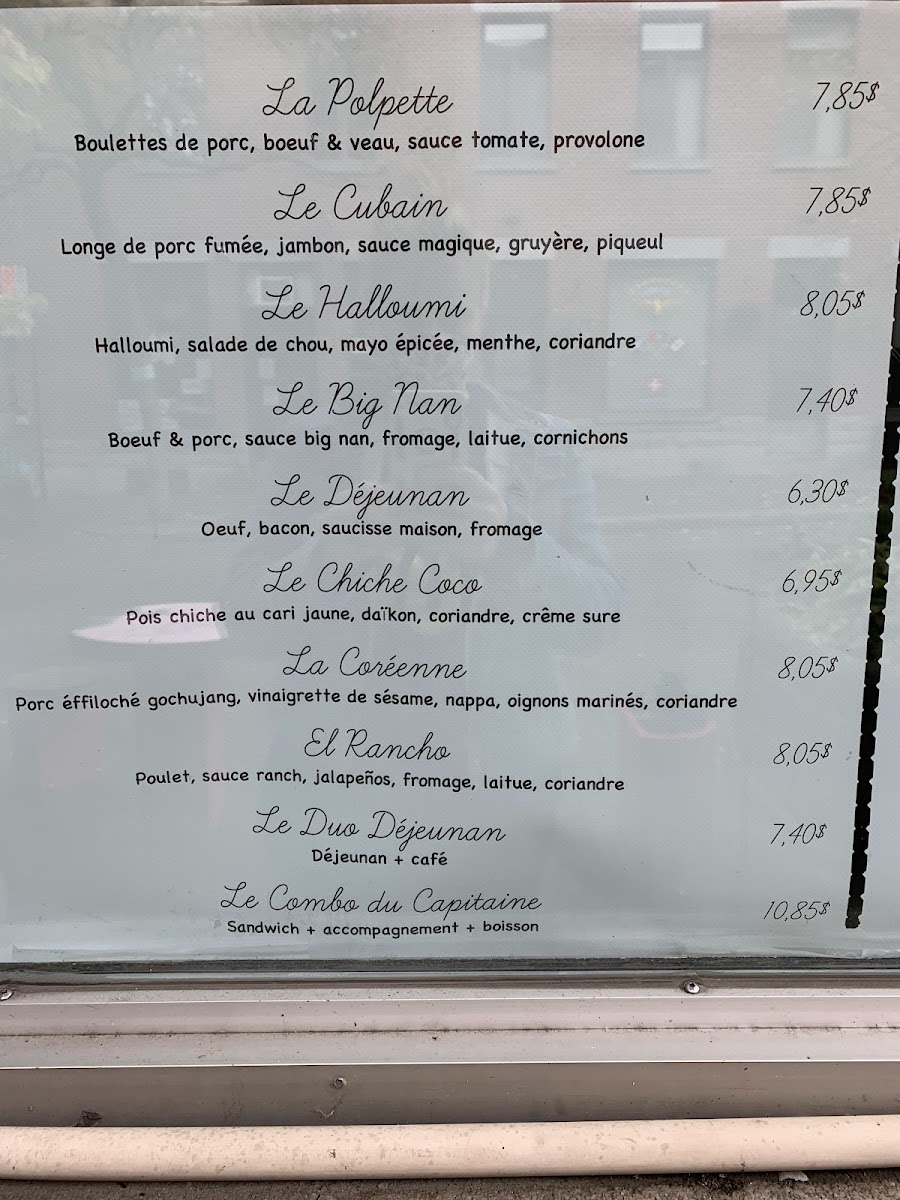 La Polpette 7,85$
Boulettes de porc, boeuf & veau, sauce tomate, provolone
Le Cubain 7,85$
Longe de porc fumée, jambon, sauce magique, gruyère, piqueul
Le Halloumi 8,05$
Halloumi, salade de chou, mayo épicée, menthe, coriandre
Le Big Nan 7,40$
Boeuf & porc, sauce big nan, fromage, laitue, cornichons
Le Déjeunan 6,30$
Oeuf, bacon, saucisse maison, fromage
Le Chiche Coco 6,95$
Pois chiche au cari jaune, daïkon, coriandre, crême sure
La Coréenne 8,05$
Porc éffiloché gochujang, vinaigrette de sésame, nappa, oignons marinés, coriandre
El Rancho 8,05$
Poulet, sauce ranch, jalapeños, fromage, laitue, coriandre
Le Duo Déjeunan 7,40$
Déjeunan + café
Le Combo du Capitaine 10,85$
Sandwich + accompagnement + boisson